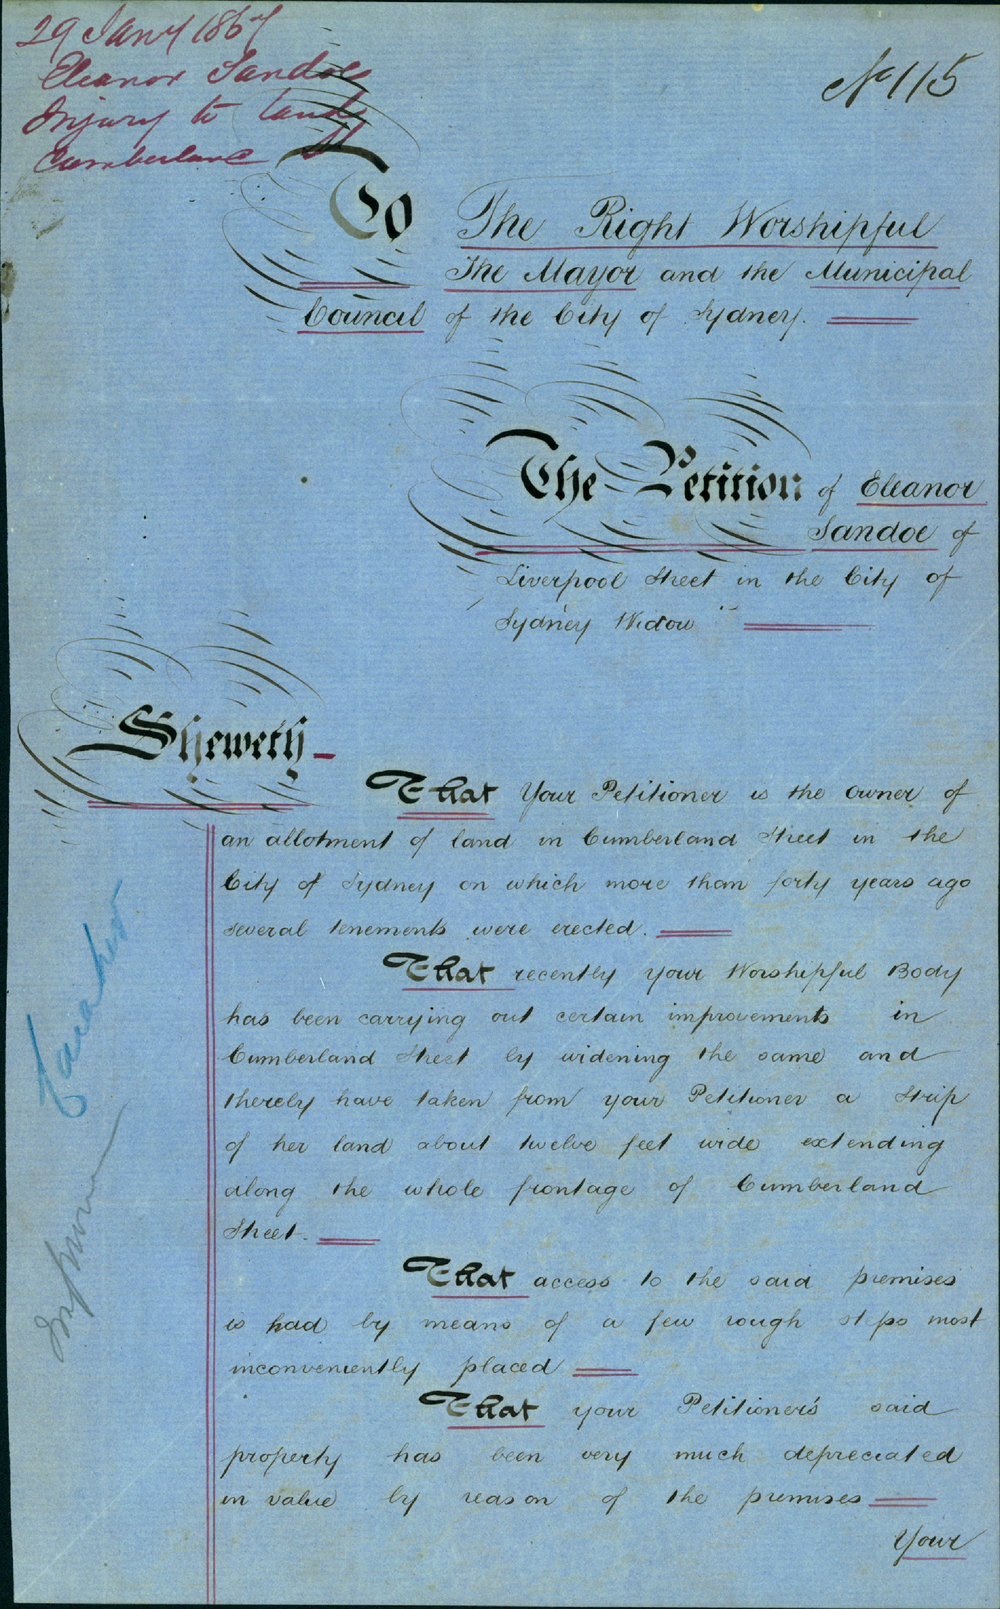 29 Jany 1867
Eleanor Sandoe
Injury to Land
Cumberland St
No 115
To The Right Worshipful
The Mayor and the Municipal
Council of the City of Sydney.
The Petition of Eleanor
Sandoe of
Liverpool Street in the City of
Sydney Widow
Sheweth
That Your Petitioner is the owner of
an allotment of land in Cumberland Street in the
City of Sydney on which more than forty years ago
several tenements were erected.
That recently your Worshipful Body
has been carrying out certain improvements in
Cumberland Street by widening the same and
thereby have taken from your Petitioner a Strip
of her land about twelve feet wide extending
along the whole frontage of Cumberland
Street.
That access to the said premises
is had by means of a few rough steps most
inconveniently placed
That your Petitioner's said
property has been very much depreciated
in value by reason of the premises
Your